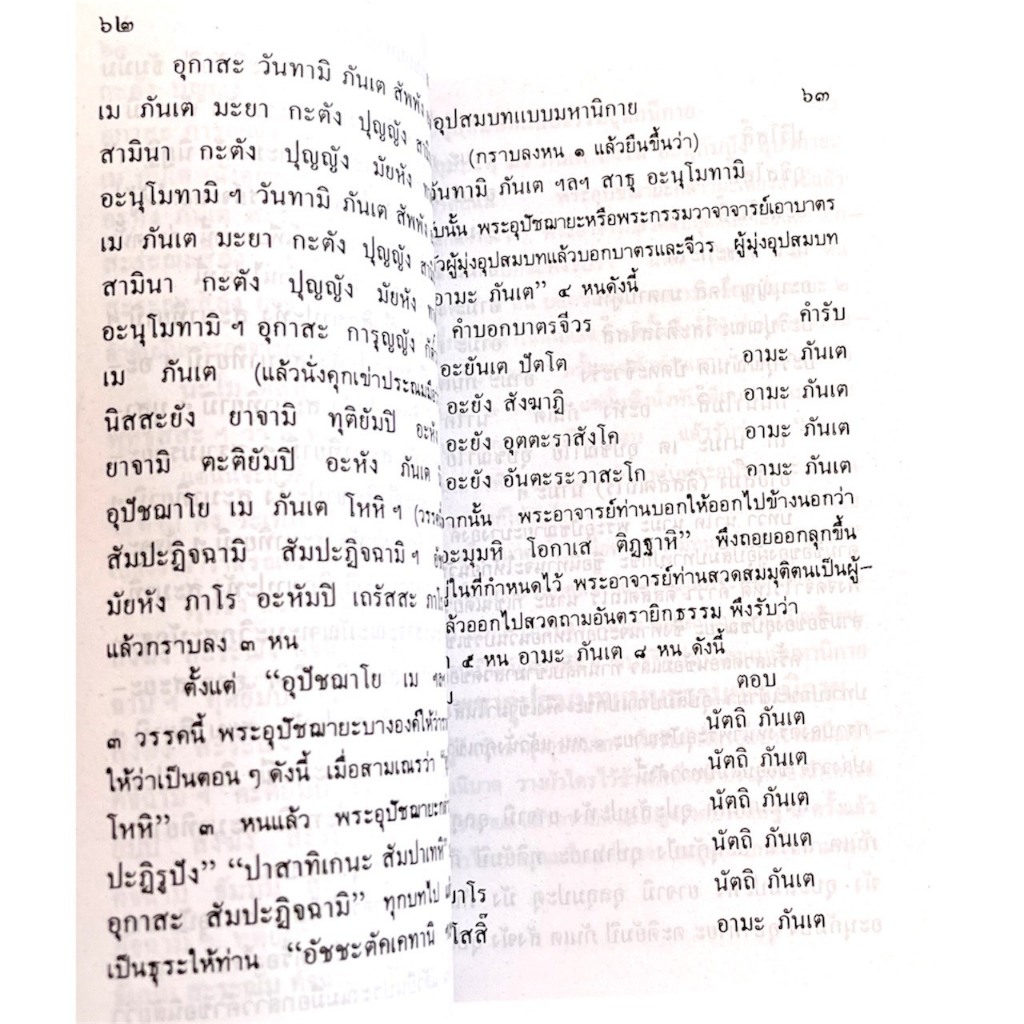 ๖๒
อุกาสะ วันทามิ ภันเต สัพพัง
เม ภันเต มะยา กะตัง ปุญญัง
สามินา กะตัง ปุญญัง มัยหัง
อะนุโมทามิ ฯ วันทามิ ภันเต สัพพัง
เม ภันเต มะยา กะตัง ปุญญัง
สามินา กะตัง ปุญญัง มัยหัง
อะนุโมทามิ ฯ อุกาสะ การุญญัง
เม ภันเต (แล้วนั่งคุกเข่าประณมมือ
นิสสะยัง ยาจามิ ทุติยัมปิ
ยาจามิ ตะติยัมปิ อะหัง ภันเต
อุปัชฌาโย เม ภันเต โหหิ ฯ
สัมปะฏิจฉามิ สัมปะฏิจฉามิ ฯ
มัยหัง ภาโร อะหัมปิ เถรัสสะ
แล้วกราบลง ๓ หน
ตั้งแต่ “อุปัชฌาโย เม
๓ วรรคนี้ พระอุปัชฌายะบางองค์ให้
ให้ว่าเป็นตอน ๆ ดังนี้ เมื่อสามเณรว่า
โหหิ” ๓ หนแล้ว พระอุปัชฌายะ
ปะฏิรูปัง” “ปาสาทิเกนะ สัมปาเทหิ”
อุกาสะ สัมปะฏิจฉามิ” ทุกบทไป
เป็นธุระให้ท่าน “อัชชะตัคเคทานิ
๖๓
อุปสมบทแบบมหานิกาย
(กราบลงหน ๑ แล้วยืนขึ้นว่า)
วันทามิ ภันเต ฯลฯ สาธุ อะนุโมทามิ
นั้น พระอุปัชฌายะหรือพระกรรมวาจาจารย์เอาบาตร
ผู้มุ่งอุปสมบทแล้วบอกบาตรและจีวร ผู้มุ่งอุปสมบท
อามะ ภันเต” ๔ หนดังนี้
คำบอกบาตรจีวร คำรับ
อะยันเต ปัตโต อามะ ภันเต
อะยัง สังฆาฏิ อามะ ภันเต
อะยัง อุตตะราสังโค อามะ ภันเต
อะยัง อันตะระวาสะโก อามะ ภันเต
จากนั้น พระอาจารย์ท่านบอกให้ออกไปข้างนอกว่า
อะมุมหิ โอกาเส ติฏฐาหิ” พึงถอยออกลุกขึ้น
ในที่กำหนดไว้ พระอาจารย์ท่านสวดสมมุติตนเป็นผู้-
แล้วออกไปสวดถามอันตรายิกธรรม พึงรับว่า
๕ หน อามะ ภันเต ๘ หน ดังนี้
ตอบ
นัตถิ ภันเต
นัตถิ ภันเต
นัตถิ ภันเต
นัตถิ ภันเต
นัตถิ ภันเต
อามะ ภันเต